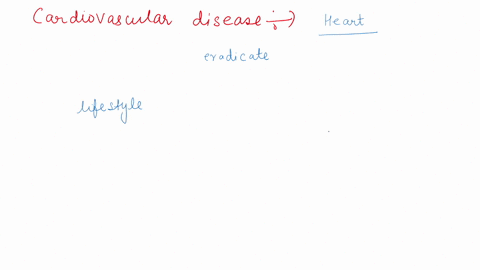 Cardiovascular disease :→ Heart
eradicate
lifestyle